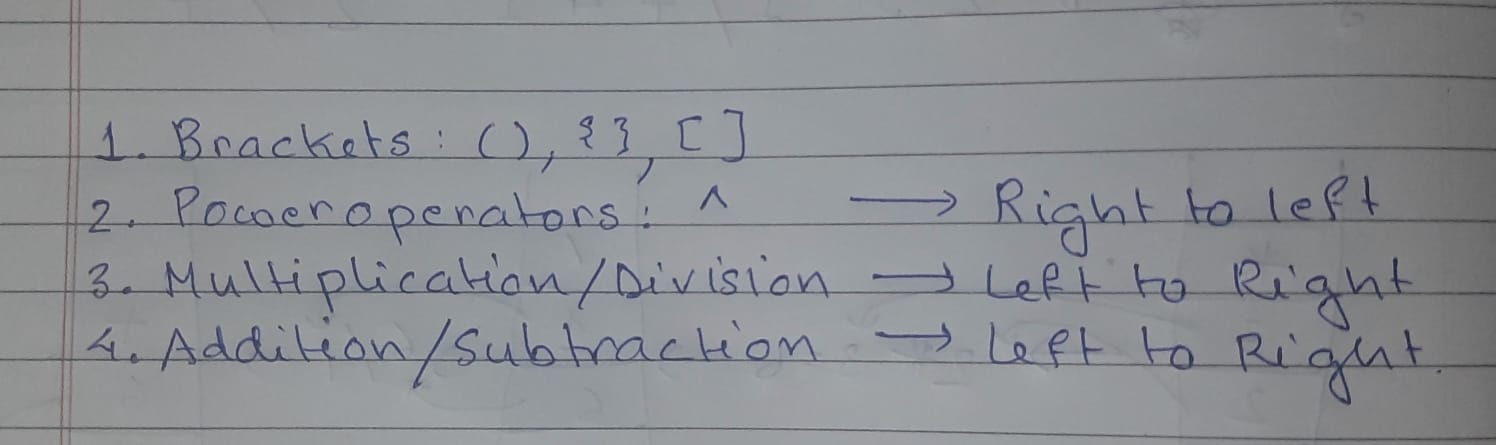 1. Brackets: (), {}, []
2. Power operators: ^ → Right to left
3. Multiplication/Division → Left to Right
4. Addition/Subtraction → Left to Right.